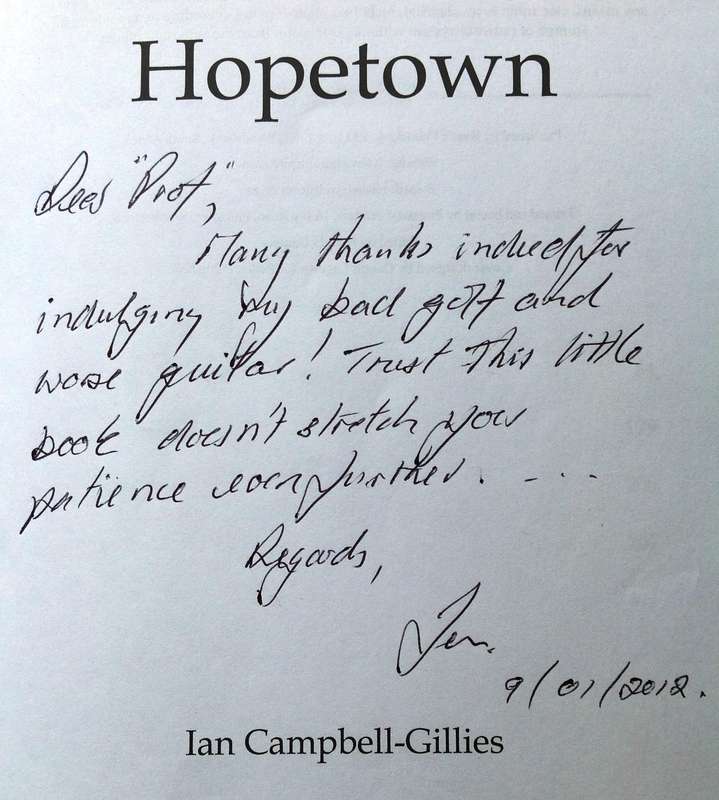 Hopetown
Dear "Prof",
Many thanks indeed for
indulging my bad golf and
worse guitar! Trust this little
book doesn't stretch your
patience even further. - - - -
Regards,
Ian.
9/01/2012.
Ian Campbell-Gillies